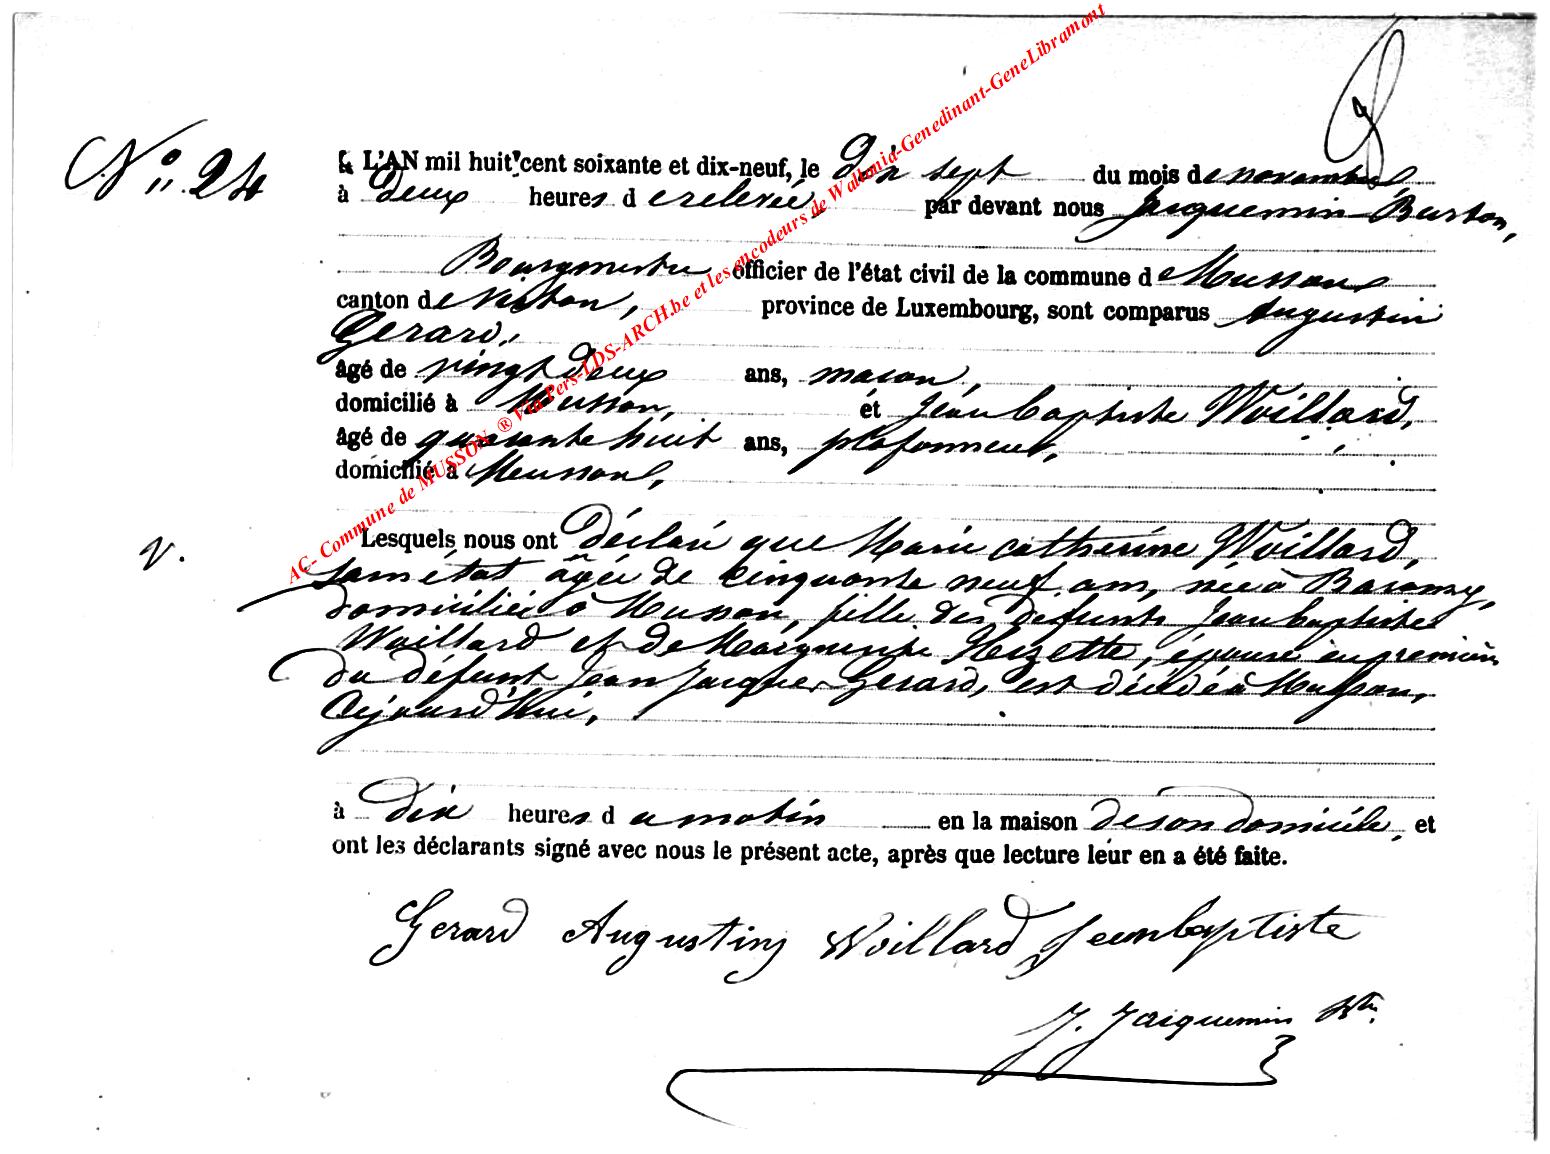 No 24
L'AN mil huit cent soixante et dix-neuf, le dix sept du mois de novembre
à deux heures de relevée, par devant nous Jacquemin Burton,
Bourgmestre officier de l'état civil de la commune de Musson
canton de Virton, province de Luxembourg, sont comparus Augustin
Gerard,
âgé de vingt deux ans, maçon,
domicilié à Musson, et Jean baptiste Woillard,
âgé de quarante huit ans, plafonneur,
domicilié à Musson,
Lesquels nous ont déclaré que Marie Catherine Woillard,
v.
sans état âgée de cinquante neuf ans, née à Baranzy,
domiciliée à Musson, fille des défunts Jean baptiste
Woillard et de Marguerite Hizette, épouse en premières
du défunt Jean Jacques Gerard, est décédée à Musson,
Cejourd'hui,
à dix heures du matin en la maison de son domicile, et
ont les déclarants signé avec nous le présent acte, après que lecture leur en a été faite.
Gerard Augustin Woillard Jeanbaptiste
J. Jacquemin Btn.
AC- Commune de MUSSON ® Via Pers-LDS-ARCH.be et les encodeurs de Wallonia-Genedinant-GeneLibramont